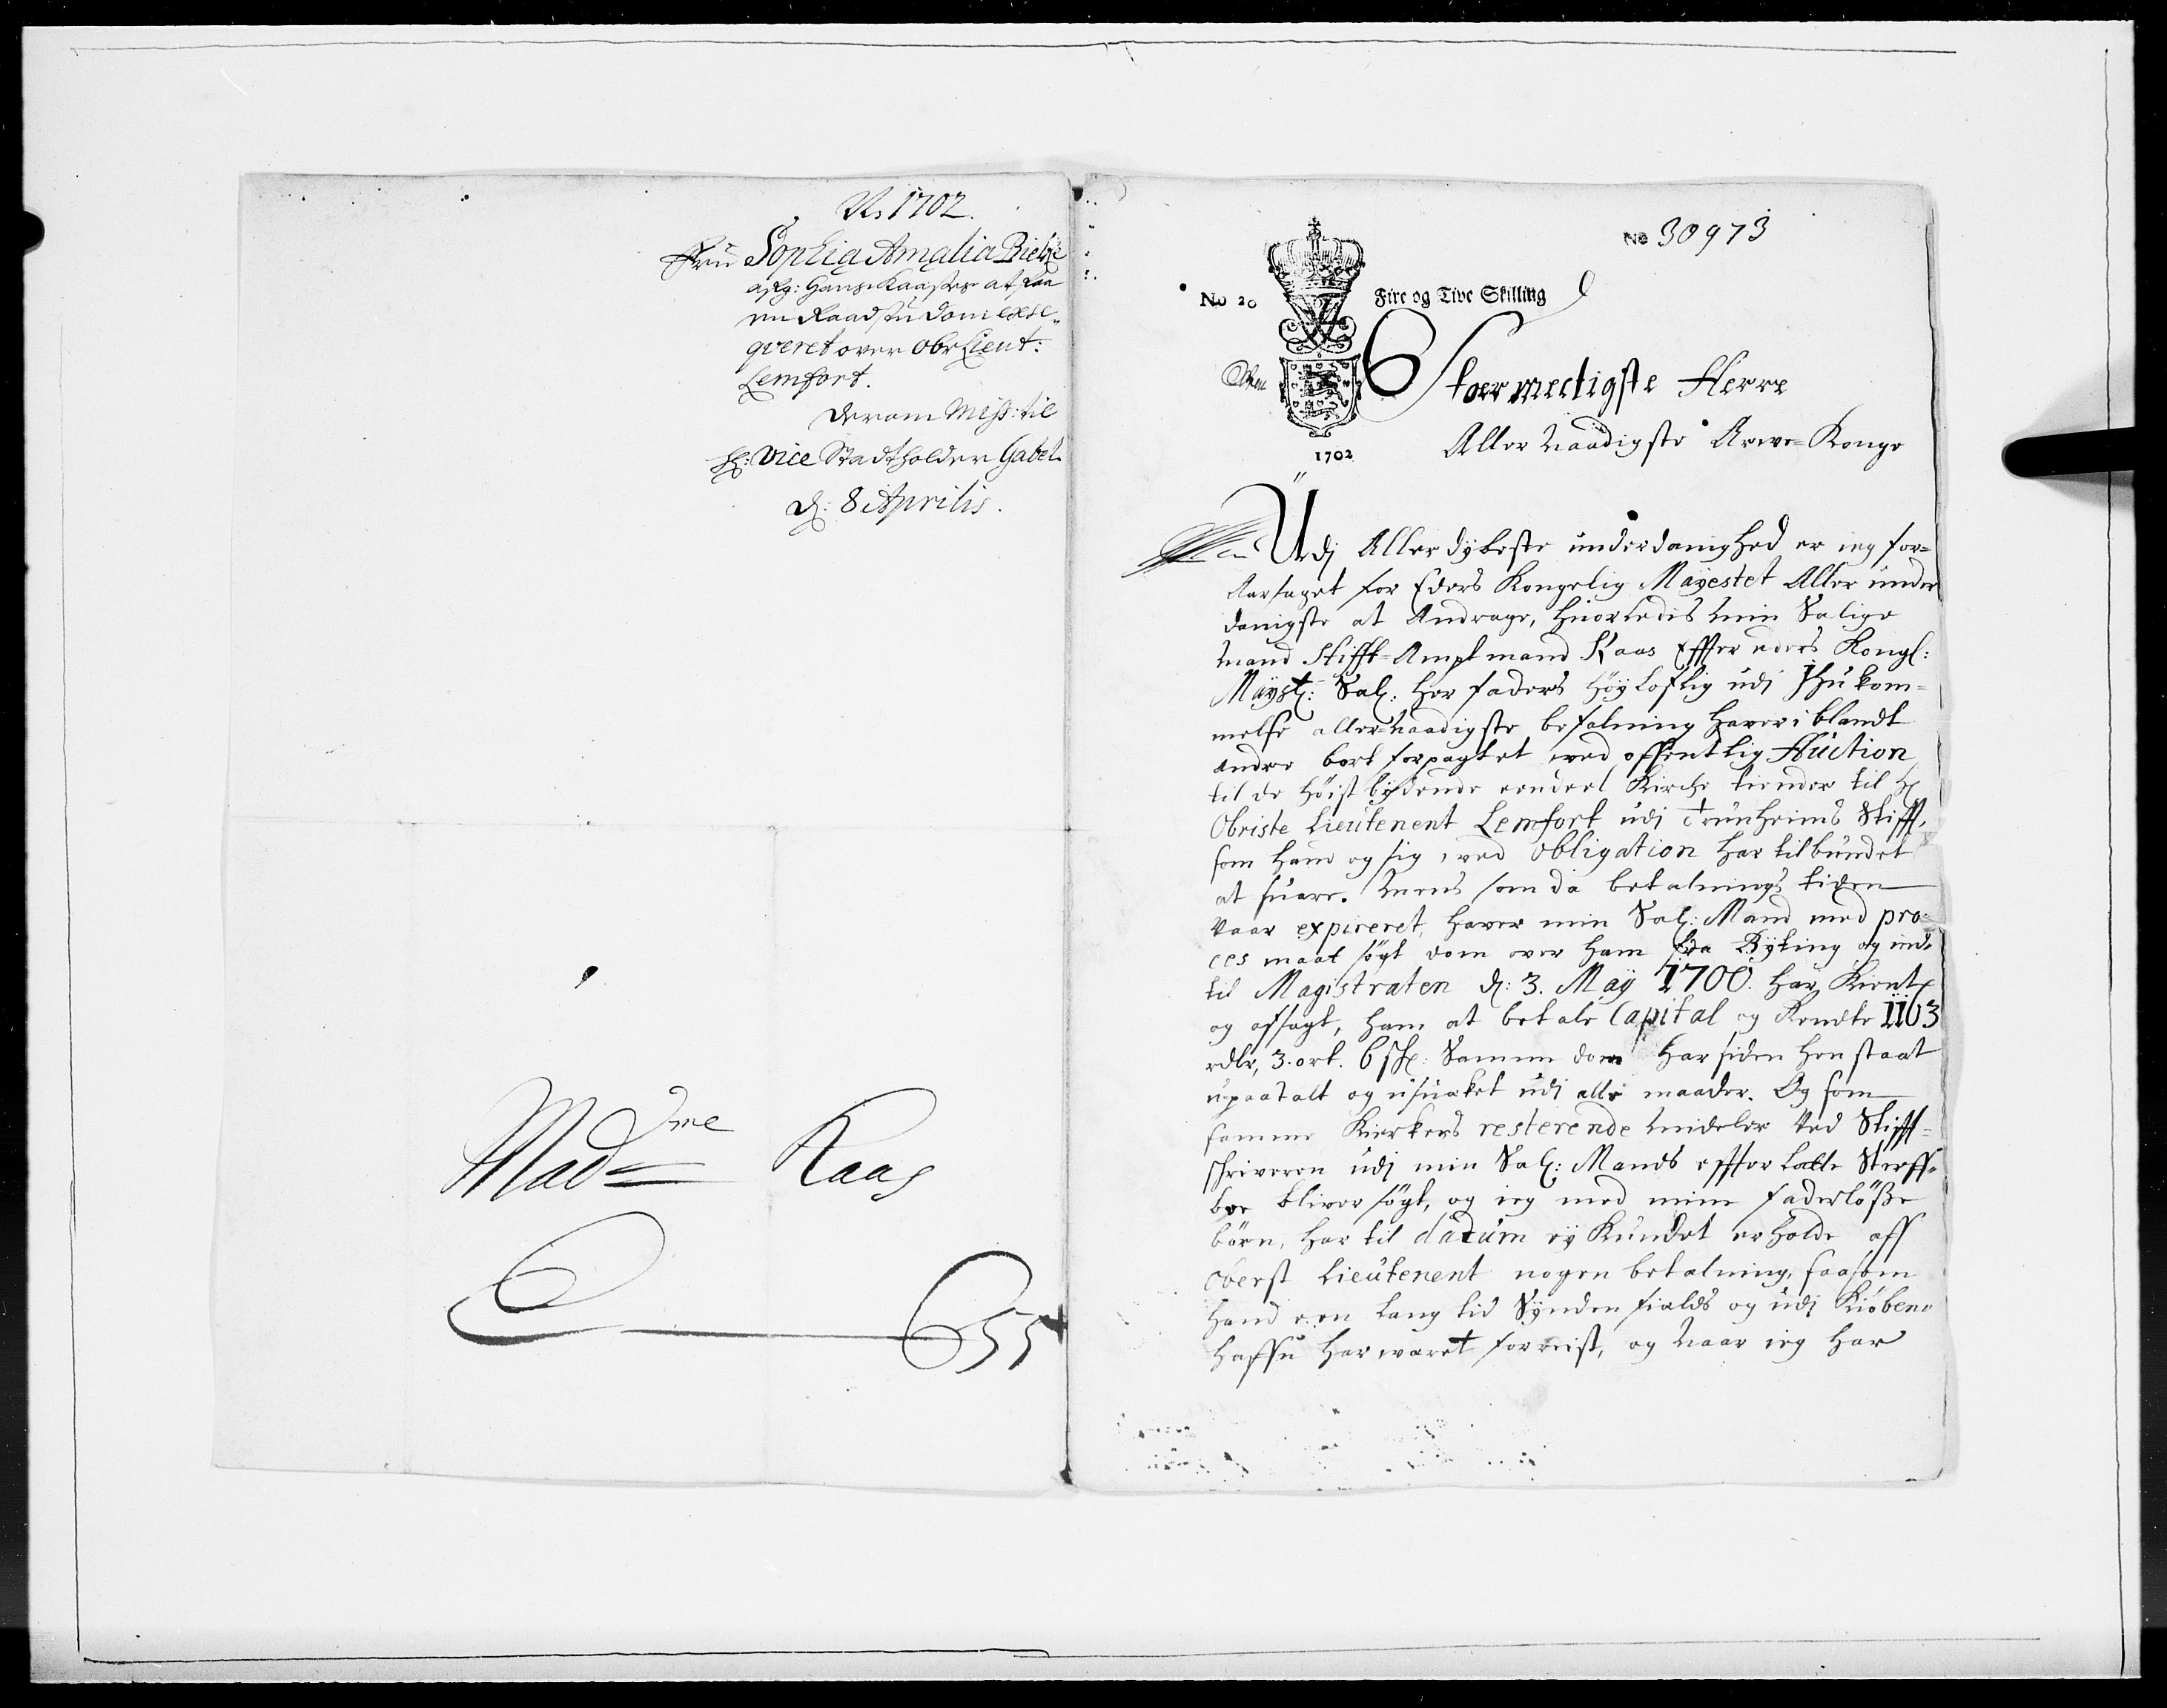 1702.
Fru Sophia Amalia Bielke
afg: Hans Kaasses at faa
en Raadstu dom exse-
qveret over Obr Lieut:
Lemfort.
derom Miss: til
H: Vice Stadtholder Gabel
d: 8 Aprilis.
Madme Kaas
655
No 30973
No 20 Fire og Tive Skilling
1702
Stoermectigste Herre
Aller Naadigste Arwe-Konge
Udj Allerdybeste underdanighed er ieg for-
aarsaget for Eders Kongelig Mayestet Aller under
danigste at Andrage, huorledis min Salige
Mand Stifft-Amptmand Kaas Effter eders Kongl:
Mayst: Sal: her faders høyloflig udj Ihukom-
melse allernaadigste befalning haver iblandt
andre bort forpagtet ved offentlig Auction
til de høist bydende eendeel Kirche tiender til H
Obriste Lieutenent Lemfort udj Trunheims Stifft,
som hand og sig, ved obligation har tilbundet
at suare. Mens som da betalnings tiden
vaar expireret, haver min Sal: Mand med pro-
ces maat søgt dom over ham fra Byting og ind-
til Magistraten d: 3. May 1700. har Kient
og afsagt, ham at betale Capital og Rendte 1103
rdlr, 3. ort. 6 sh: Samme dom har siden hen staat
upaatalt og usuaket udj alle maader. Og som
samme Kierkers resterende Mideler ved Stifft-
schriveren udj min Sal: Mands effterlatte Sterff-
boe bliver søgt, og ieg med mine faderløsse
børn, har til datum ey Kundet erholde aff
Oberst Lieutenent nogen betalning, saasom
hand een lang tid Synden fields og udj Kiøben-
haffn har været forreist, og naar ieg har